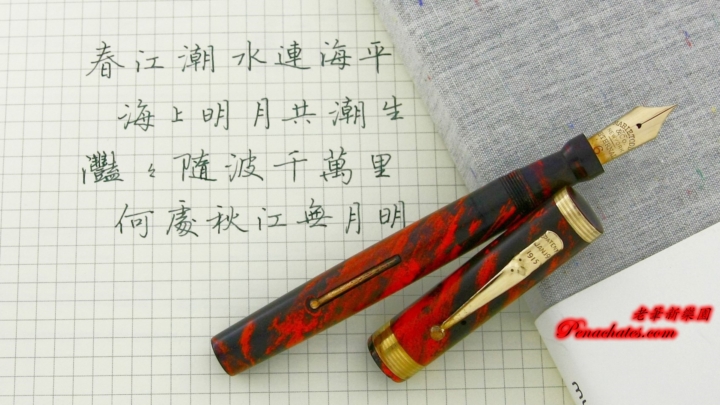 春江潮水連海平
海上明月共潮生
灩々隨波千萬里
何處秋江無月明
1915
老爺新樂園
Penachates.com